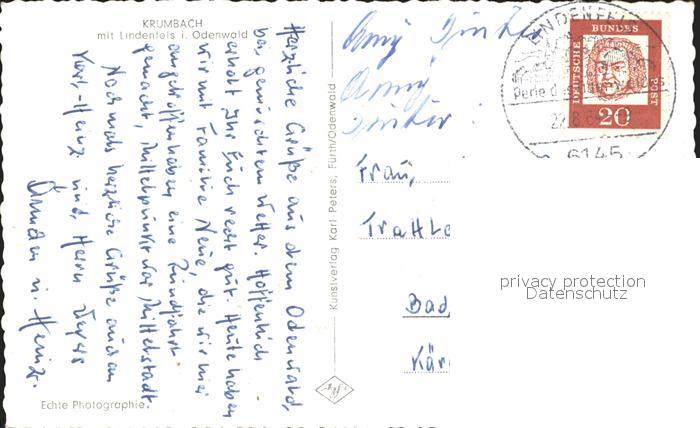 KRUMBACH
mit Lindenfels i. Odenwald
Herzliche Grüße aus dem Odenwald,
bei gemischtem Wetter. Hoffentlich
erholt Ihr Euch recht gut. Heute haben
wir mit Familie Neue, die wir hier
angetroffen haben eine Rundfahrt
gemacht, Mittelpunkt war Michelstadt.
Nochmals herzliche Grüße auch an
Karl-Heinz und Herrn
u. Heinz.
Echte Photographie
Kunstverlag Karl Peters, Fürth/Odenwald
Frau,
Trahle
Bad
Kär
LINDENFELS
Perle des Odenwaldes
6145
DEUTSCHE BUNDESPOST
20
privacy protection
Datenschutz